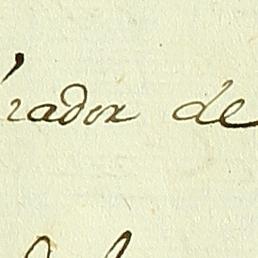 rador de